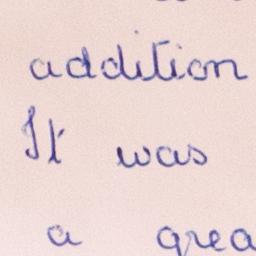 addition
It was
a grea